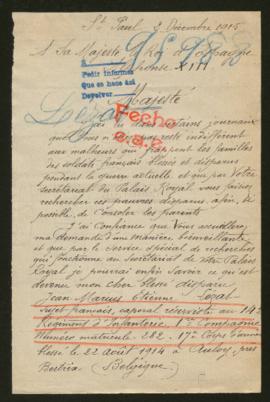 St Paul 3 Décembre 1915
A Sa Majesté le Roi d'Espagne
Alphonse XIII
95988
Pedir informes
Que se hace así
Devolver
Majesté
Fecho
J'ai lu dans certains journaux
que Vous n'
pas resté indifférent
aux malheurs qui frappent les familles
des soldats français blessés et disparus
pendant la guerre actuelle et que par Votre
Secrétariat du Palais Royal vous faites
rechercher ces pauvres disparus, afin, si
possible, de consoler les parents
J'ai confiance que Vous accueillerez
ma demande d'une manière bienveillante
et que par le service spécial de recherches
qui fonctionne au Secrétariat de votre Palais
Royal je pourrai enfin savoir ce qu'est
devenu mon cher blessé disparu
Jean Marius Etienne Legat
sujet français, caporal réserviste au 14e
Régiment d'Infanterie 1re Compagnie
Numéro matricule 282. 17e Corps d'armée
blessé le 22 août 1914 à
près
Bertrix (Belgique)